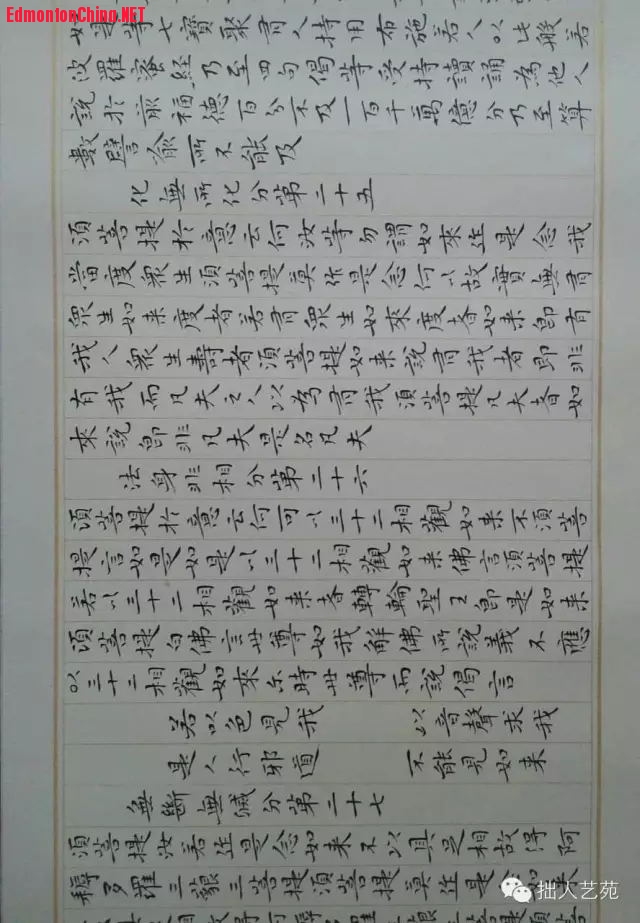 EdmontonChina.NET
如是等七寶聚有人持用布施若人以此般若
波羅蜜經乃至四句偈等受持讀誦為他人
說於前福德百分不及一百千萬億分乃至算
數譬喻所不能及
化無所化分第二十五
須菩提於意云何汝等勿謂如來作是念我
當度眾生須菩提莫作是念何以故實無有
眾生如来度者若有眾生如來度者如来即有
我人眾生壽者須菩提如来說有我者即非
有我而凡夫之人以為有我須菩提凡夫者如
來說即非凡夫是名凡夫
法身非相分第二十六
須菩提於意云何可以三十二相觀如来不須菩
提言如是如是以三十二相觀如来佛言須菩提
若以三十二相觀如来者轉輪聖王即是如来
須菩提白佛言世尊如我解佛所說義不應
以三十二相觀如來尔時世尊而說偈言
若以色見我 以音聲求我
是人行邪道 不能見如来
無斷無滅分第二十七
須菩提汝若作是念如来不以具足相故得阿
耨多羅三藐三菩提須菩提莫作是念如来
拙人艺苑